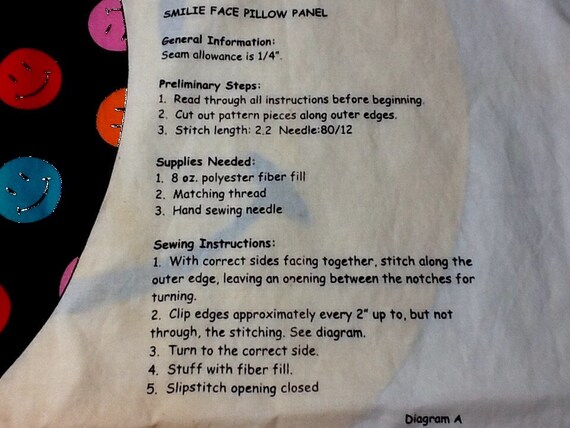 SMILIE FACE PILLOW PANEL
General Information:
Seam allowance is 1/4".
Preliminary Steps:
1. Read through all instructions before beginning.
2. Cut out pattern pieces along outer edges.
3. Stitch length: 2.2 Needle:80/12
Supplies Needed:
1. 8 oz. polyester fiber fill
2. Matching thread
3. Hand sewing needle
Sewing Instructions:
1. With correct sides facing together, stitch along the
outer edge, leaving an opening between the notches for
turning.
2. Clip edges approximately every 2" up to, but not
through, the stitching. See diagram.
3. Turn to the correct side.
4. Stuff with fiber fill.
5. Slipstitch opening closed
Diagram A